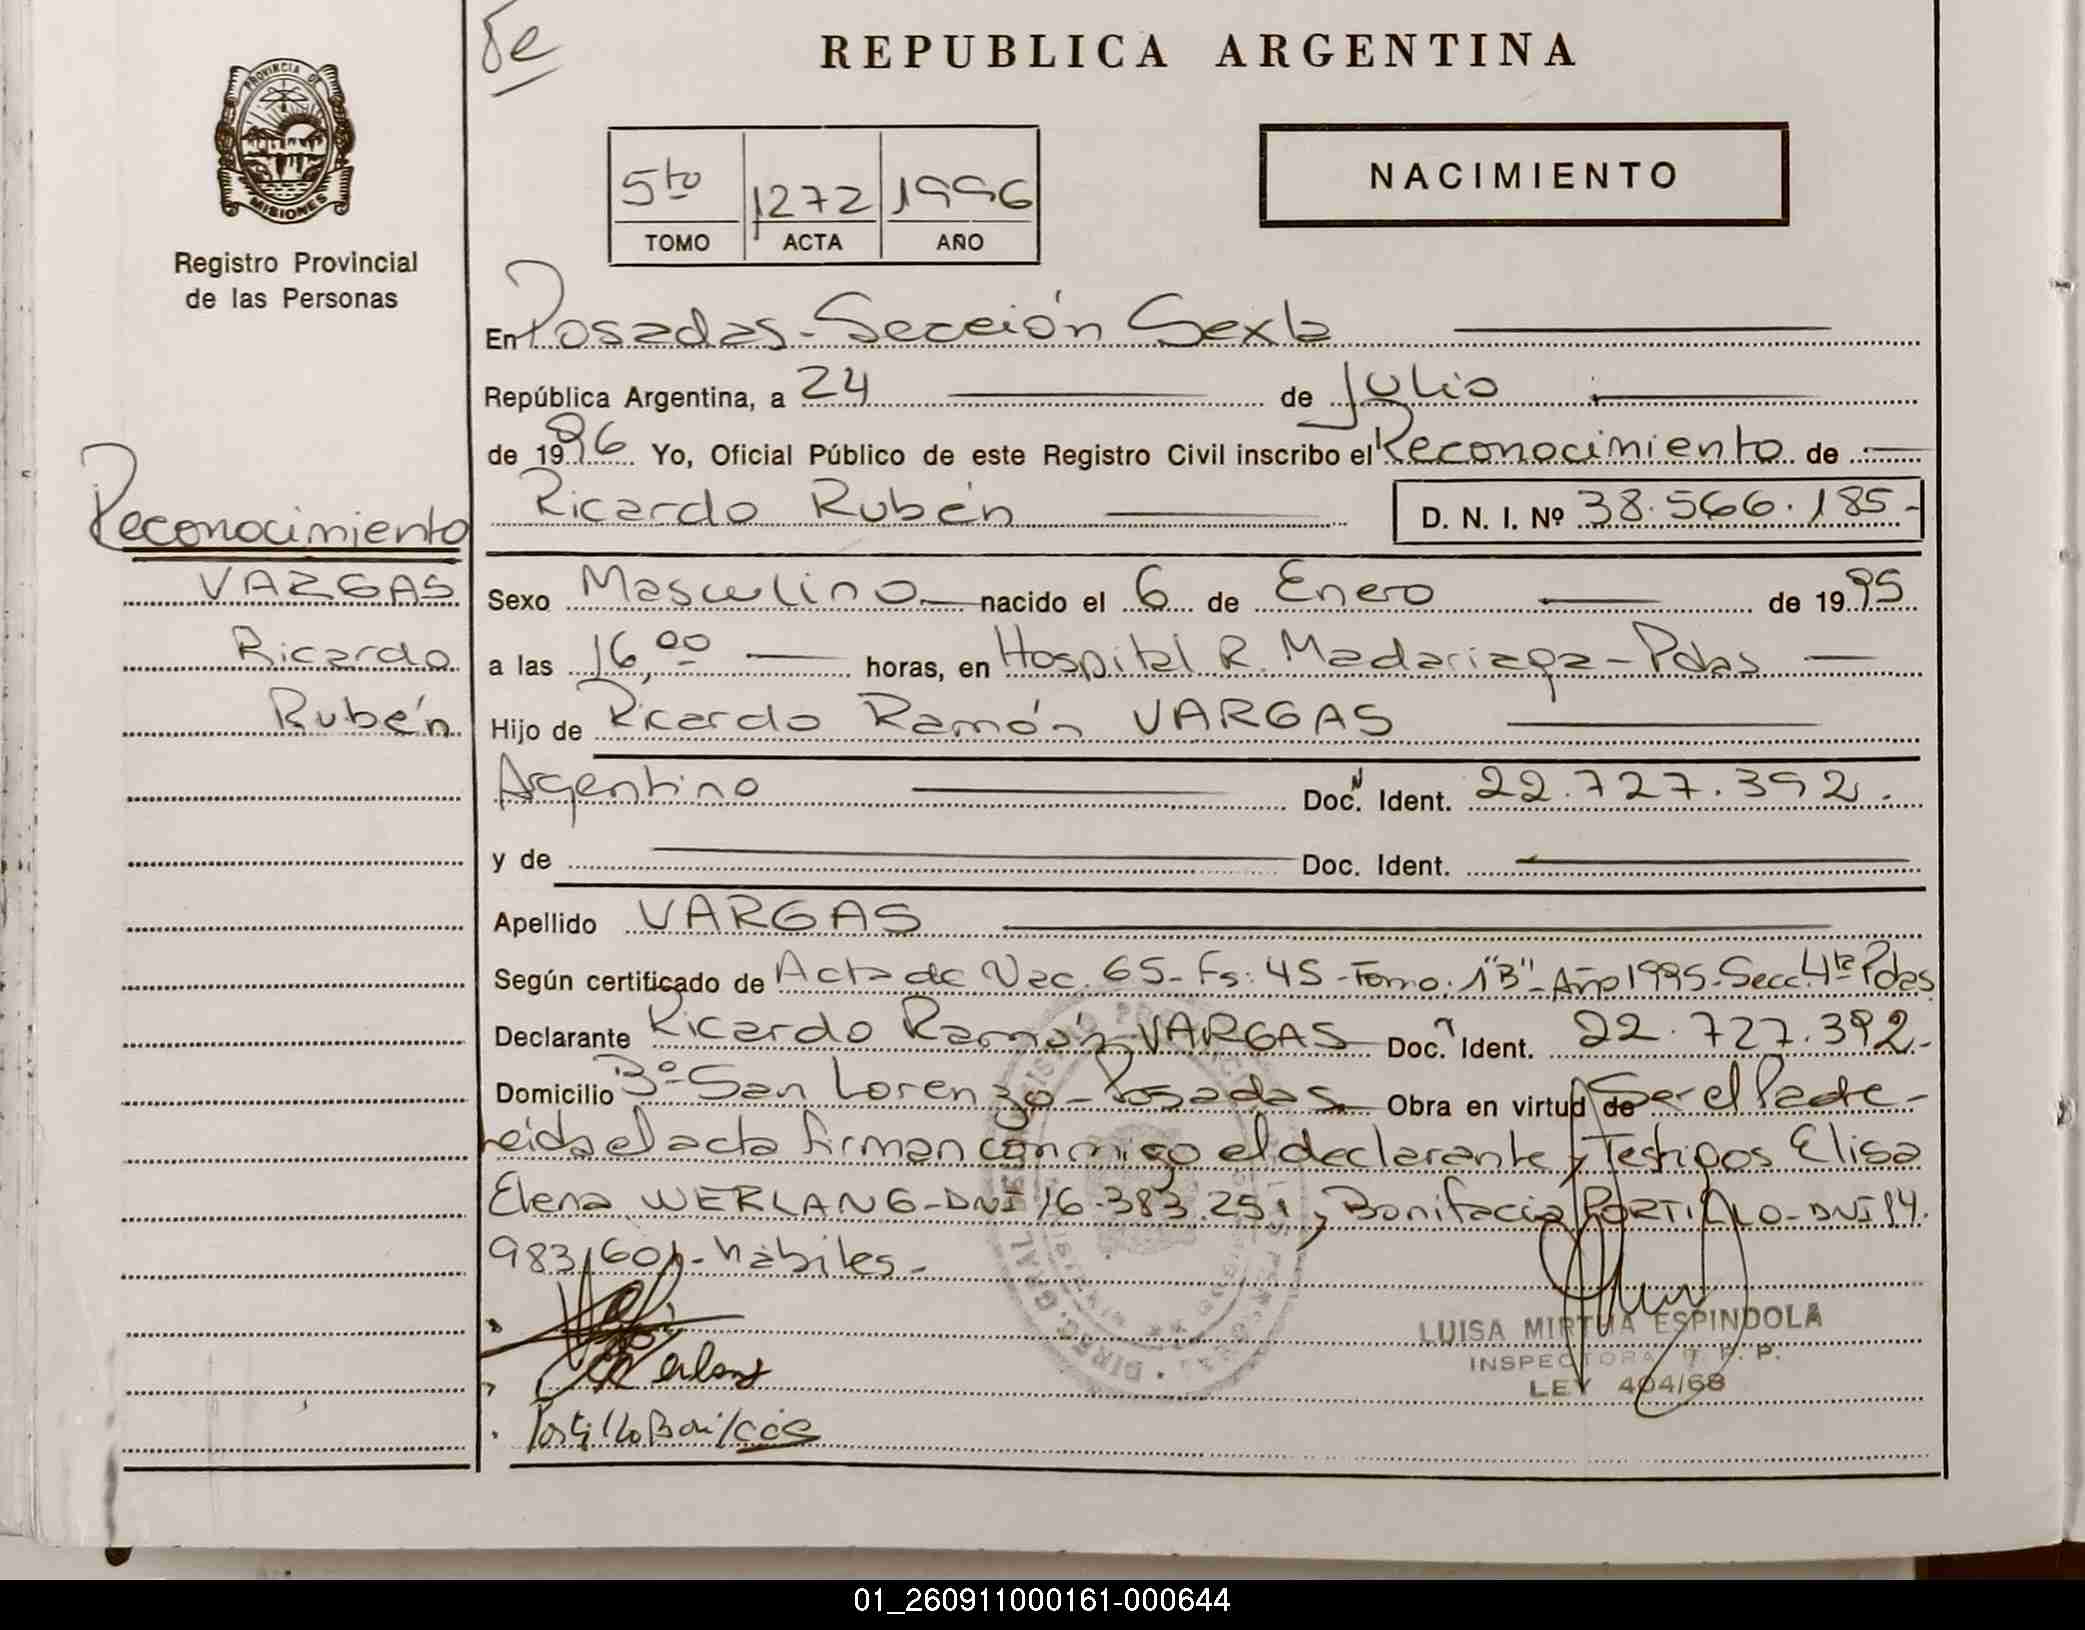 Se
REPUBLICA ARGENTINA
PROVINCIA DE MISIONES
5to 1272 1996
TOMO ACTA AÑO
NACIMIENTO
Registro Provincial
de las Personas
En Posadas - Sección Sexta
República Argentina, a 24 de Julio
de 1996 Yo, Oficial Público de este Registro Civil inscribo el Reconocimiento de
Ricardo Rubén D. N. I. Nº 38.566.185.-
Reconocimiento
VARGAS
Ricardo
Rubén
Sexo Masculino nacido el 6 de Enero de 1995
a las 16,00 horas, en Hospital R. Madariaga - Pdas
Hijo de Ricardo Ramón VARGAS
Argentino Doc. Ident. 22.727.392.
y de Doc. Ident.
Apellido VARGAS
Según certificado de Acta de Nac. 65 - Fs: 45 - Tomo: 1"B" - Año 1995 - Secc. 4ta Pdas
Declarante Ricardo Ramón VARGAS Doc. Ident. 22.727.392.-
Domicilio Bº San Lorenzo - Posadas Obra en virtud de Ser el Padre -
Leida el acta firman conmigo el declarante y Testigos Elisa
Elena WERLANG - DNI 16.383.251 y Bonifacia PORTILLO - DNI 14.
983.601 - hábiles -
Portillo Bonifacia
LUISA MIRTHA ESPINDOLA
INSPECTORA R. P. P.
LEY 404/68
01_260911000161-000644